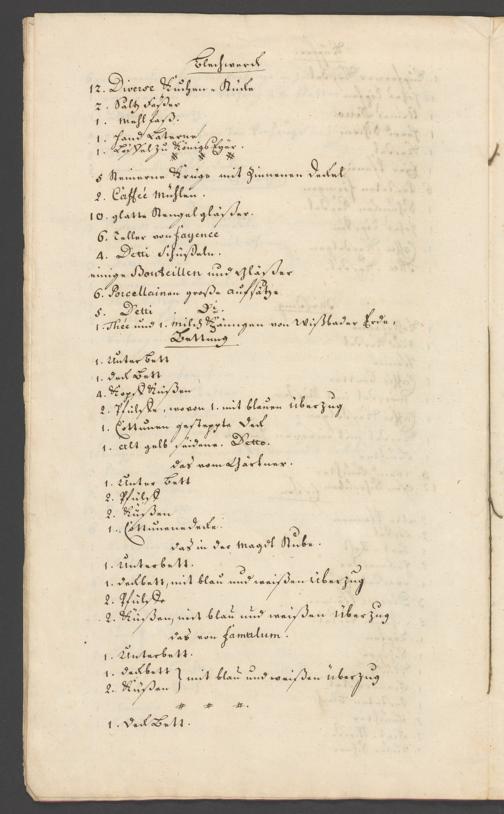 Blechwerck
12. Diverse Kuchen-Stücke
2. Saltz Fäßer
1. Mehl Faß.
1. Hand Laterne
1. Löffel zu Königs Eyer.
# # #
5 Steinerne Krüge mit Zinnenen Deckel
2. Caffée Mühlen.
10. glatte Stengel gläßer.
6. Teller von Fayence
4. Detti Schüßeln.
einige Bouteillen und Gläßer
6. Porcellainen große Aufsätze
5. Detti
1. Thee und 1. Milch Känngen von Wißbader Erde.
Bettung
1. Unter Bett
1. Deck Bett
4. Kopf Küßen
2. Pfülffe, wovon 1. mit blauen Überzug
1. Cottunen gesteppte Deck
1. alt gelb seidene Detto.
das vom Gärtner.
1. Unter Bett
2. Pfülff
2. Küßen
1. Cottunene decke.
das in der Magdt Stube.
1. Unterbett.
1. deckbett, mit blau und weißen Überzug
2. Pfülffe
2. Küßen, mit blau und weißen Überzug
das von Famulum.
1. Unterbett.
1. deckbett } mit blau und weißen Überzug
2. Küßen
# # #.
1. Deck Bett.